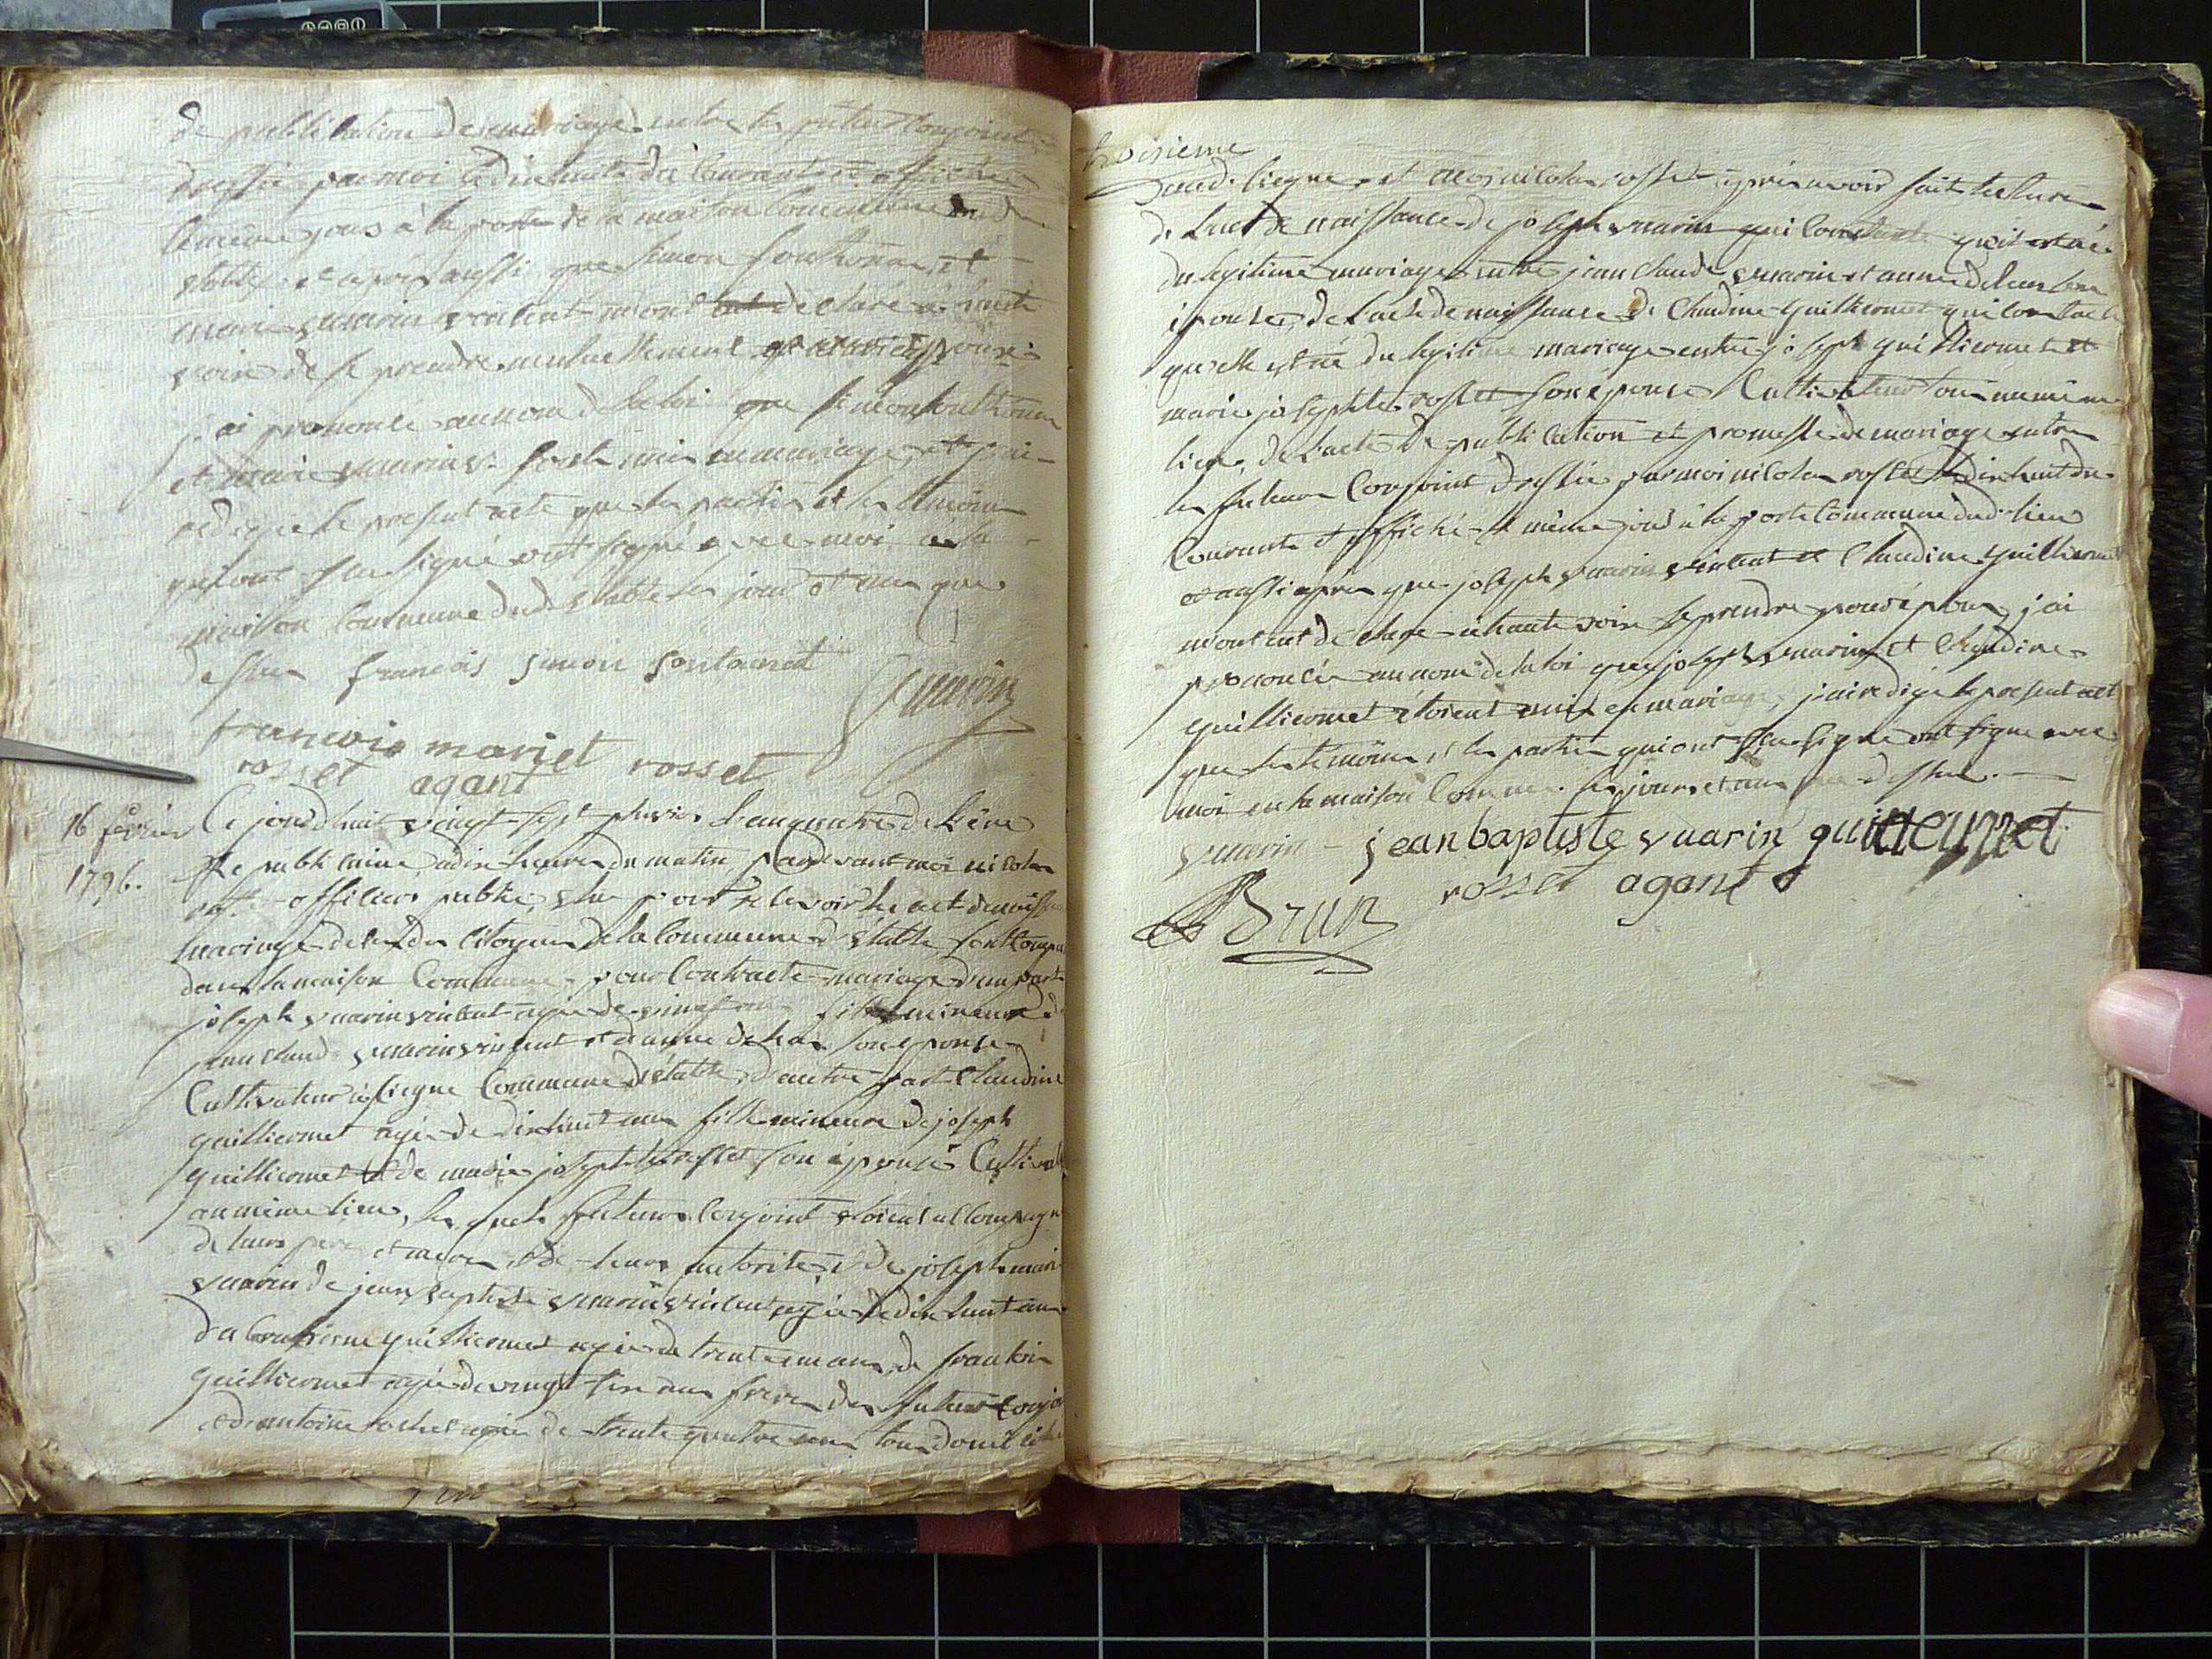 de publication de mariage entre les futurs conjoint
dressée par moi le dix huit du Courant et affichée
le même jour à la porte de la maison Commune dud
étable et après aussi que Simon fonthonna et
marie vuarin vincent m'ont ont declaré à haute
voix de se prendre mutuellement pour epoux
j'ai prononcé au nom de la loi que Simon fonthonna
et marie vuarin v. sont unis en mariage et j'ai
redigé le present acte que les parties et les temoins
qui ont su signé ont signé avec moi a la
maison Commune dud. etable les jour et an que
dessus françois simon fontanet
vuarin
francois mariet rosset
rosset agant
16 février
1796.
Ce jourd'huit vingt sept pluviose l'an quatre de l'ère
Republicaine à dix heures du matin, pardevant moi nicolas
rosset officier public, élu pour recevoir les act de naissance
mariage deces des Citoyens de la Commune d'étable sont Comparu
dans la maison Commune, pour Contracte mariage d'un part
joseph vuarin vincent agé de vingt ans fils mineur de
jean claude vuarin vincent et d'anne deleans son epouse
Cultivateur à liegne Commune d'étable, d'autre part Claudine
guilliermet agée de dixhuit ans fille mineure de joseph
guilliermet et de marie josephte rosset son épouse Cultivat
au même lieu, les quels futurs Conjoint etoient accompagn
de leurs père et mere, et de leurs autorité, et de joseph marie
vuarin de jean baptiste vuarin vincent agé de dix huit ans
guilliermet agé de trente un ans, de francois
guilliermet agé de vingt six ans frere des futurs conjoi
et d'antoine rochet agé de trente quatre ans tous domicilié
troisieme
aud. liegne, et moi nicolas rosset après avoir fait lecture
de l'act de naissance de joseph vuarin qui Constante qu'il est né
du legitime mariage entre jean claude vuarin et anne deleans son
épouse, de l'acte de naissance de Claudine guilliermet qui constate
qu'elle est né du legitime mariage entre joseph guilliermet et
marie josephte rosset son épouse Cultivateur tous au même
lieu, de l'acte de publication et promesse de mariage entre
les futurs Conjoint dressée par moi nicolas rosset le dix huit du
Courant et affiché le même jour à la porte Commune dud. lieu
et aussi après que joseph vuarin vincent et Claudine guilliermet
m'ont ont declare à haute voix se prendre pour époux, j'ai
prononcée au nom de la loi que joseph vuarin et Claudine
guilliermet étoient unis en mariage, j'ai redigé le present act
que les temoins, et les parties qui ont su signé ont signé avec
moi en la maison Commune. les jours et ans que dessus.
vuarin - jean baptiste vuarin guilleumet
Brun rosset agant